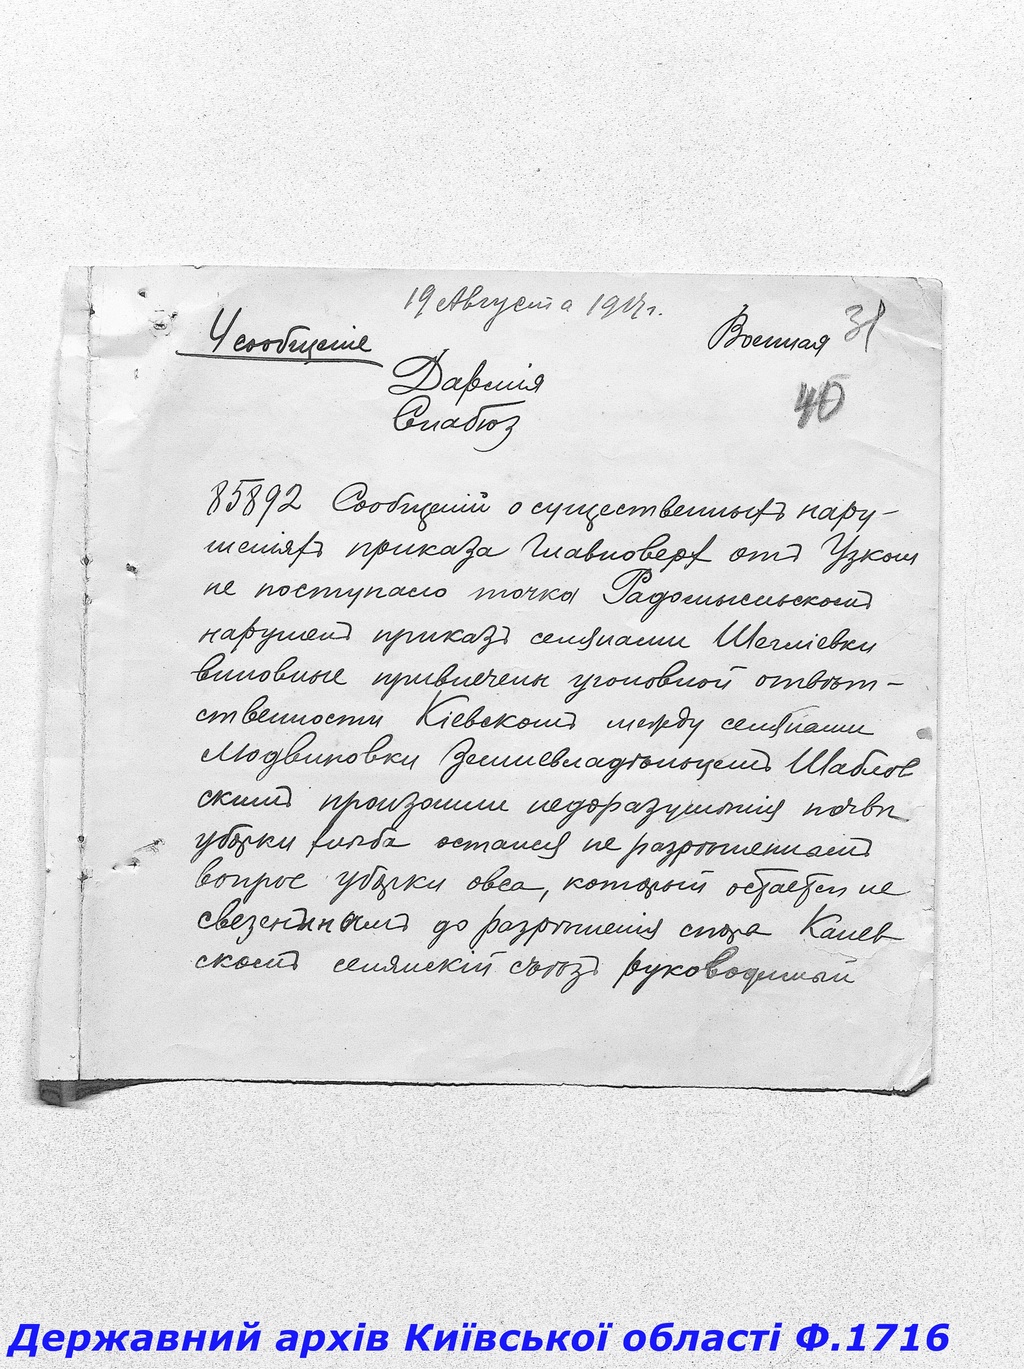 19 Августа 1917г.
Ч сообщеніе
Военная 31
Дармія
Снабюз
40
85892 Сообщеній о существенныхъ нару-
шеніяхъ приказа Главковерх отъ Узком
не поступало точка Радомысльскомъ
нарушен приказъ селянами
виновные привлечены уголовной отвѣт-
ственности Кіевскомъ между селянами
Людвиновки Землевладѣльцемъ Шаблов
скимъ произошли недоразумѣнія почвѣ
уборки хлѣба остался не разрѣшеннымъ
вопрос уборки овса, который остается не
свезеннымъ до разрѣшенія спора Канев
скомъ селянскій съюзъ руководимый
Державний архів Київської області Ф.1716